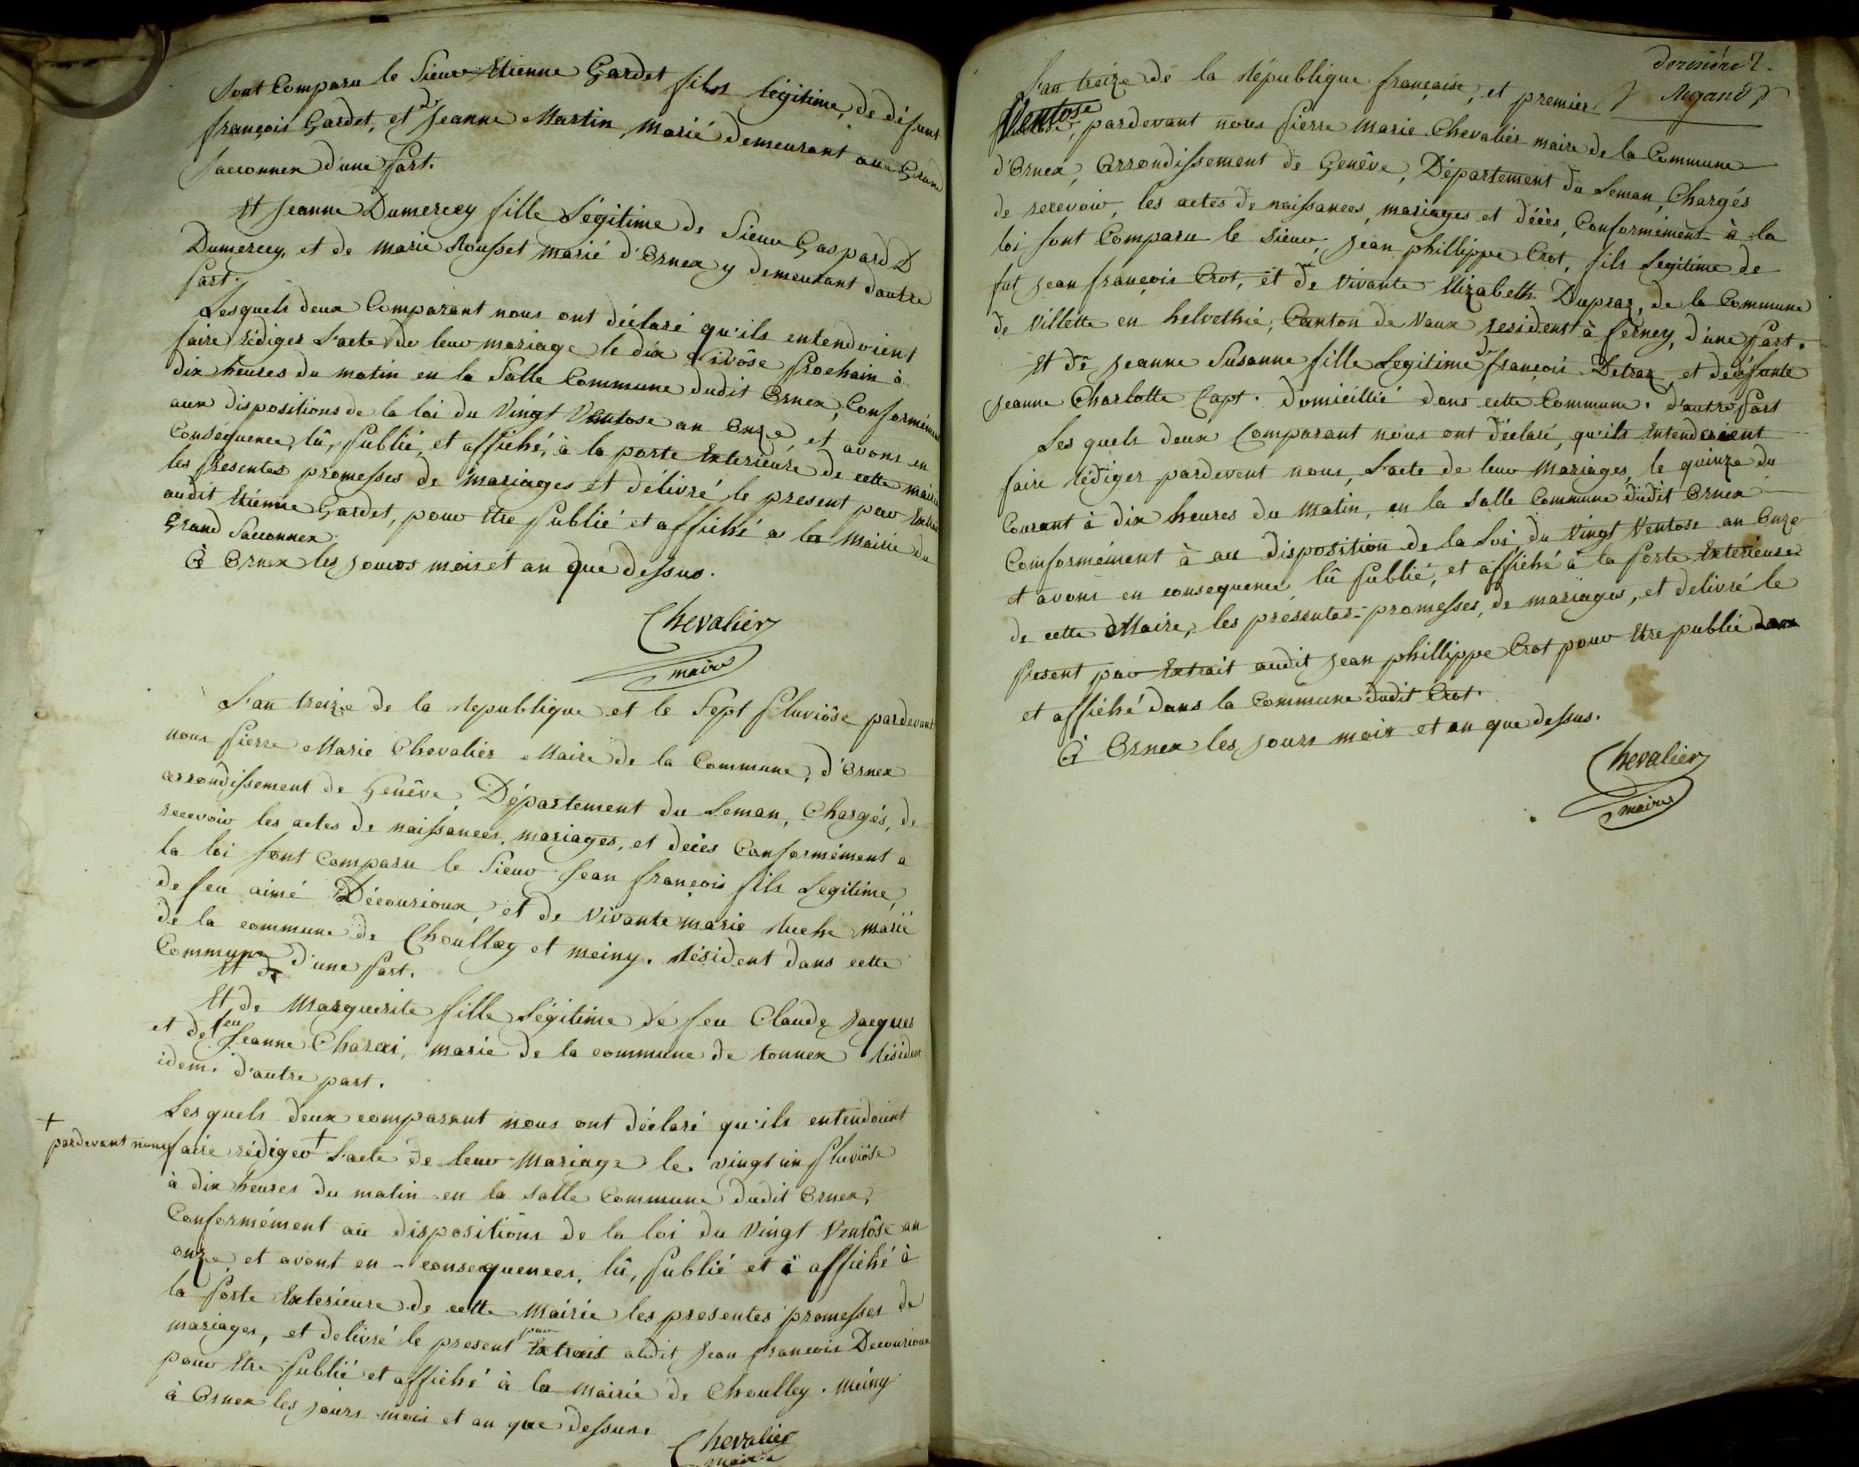 Sont Comparu le Sieur Etienne Gardet fils légitime, de défunt
françois Gardet, et de Jeanne Martin marié demeurant au Grand
Sacconnex d'une part.
Et Jeanne Dumercey fille Légitime de Sieur Gaspard D
Dumercey, et de marie Rousset marié d'Ornex y demeurant d'autre
part.
Lesquels deux Comparant nous ont déclaré qu'ils entendoient
faire rédiger l'acte de leur mariage le dix Nivôse prochain à
dix heures du matin en la Salle Commune dudit Ornex, Conformément
aux dispositions de la loi du Vingt Ventose an Onze, et avons en
Conséquence, lû, publié, et affiché, à la porte Exterieure de cette mairie
les presentes promesses de mariages et délivré le present par Extrait
audit Etienne Gardet, pour etre publié et affiché a la Mairie du
Grand Sacconnex.
à Ornex les jours mois et an que dessus.
Chevalier
maire
L'an treize de la republique et le Sept pluviôse pardevant
nous pierre Marie Chevalier Maire de la Commune, d'Ornex
arrondissement de Genêve, Département du Leman, Chargés, de
recevoir les actes de naissances, mariages, et décès Conformément a
la loi sont Comparu le Sieur Jean françois fils Legitime,
de feu aimé Décourioux et de vivante marie marié
de la commune de Choulley et meiny. résident dans cette
Commune d'une part.
Et de
Et de Marguerite fille Légitime de feu Claude Jacques
et de feu Jeanne Charci, marie de la commune de tonnex résident
idem. d'autre part.
Les quels deux comparant nous ont déclaré qu'ils entendoient
+
pardevant nous
faire rédiger + l'acte de leur Mariage le vingt un pluviôse
à dix heures du matin en la salle Commune dudit Ornex,
Conformément au dispositions de la loi du Vingt Ventôse an
onze, et avont en consequences, lû, publié et à affiché à
la porte Exterieure de cette Mairie les presentes promesses de
mariages, et delivré le present par Extrait audit Jean françois Decourioux
pour Etre publié et affiché à la Mairie de Choulley. Meiny
à Ornex les jours mois et an que dessus.
Chevalier
maire
dernière
Regand
L'an treize de la république française, et premier
Ventose, pardevant nous pierre Marie Chevalier maire de la Commune
d'Ornex, Arrondissement de Genêve, Département du Leman, Chargés
de recevoir, les actes de naissances, mariages et décès, Conformément à la
loi sont Comparu le sieur Jean phillippe Crot, fils Legitime de
fut Jean françois Crot, et de vivante Elizabeth Dupraz, de la Commune
de Villette en helvethié, Canton de Vaux resident à ferney, d'une part.
Et de Jeanne Susanne fille Legitime de françois Detraz, et de défunte
Jeanne Charlotte Capt. domicillié dans cette Commune. d'autre part
Les quels deux Comparant nous ont déclaré, qu'ils Entenderoient
faire rédiger pardevent nous, l'acte de leur Mariages, le quinze du
Courant à dix heures du Matin, en la Salle Commune dudit Ornex
Conformément à au disposition de la Loi du Vingt Ventose an Onze
et avons en consequence lû publié, et affiché à la porte Exterieure
de cette Maire, les présentes promesses, de mariages, et delivré le
present par Extrait audit Jean phillippe Crot pour Etre publié dans
et affiché dans la Commune dudit Crot.
à Ornex les jours mois et an que dessus.
Chevalier
maire